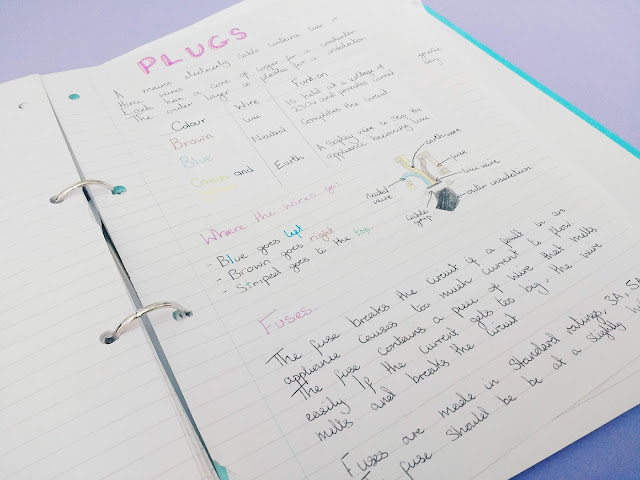 PLUGS
A mains electricity cable contains two or
three wires
Each has a core of copper for a conduction
The outer layer is plastic for a insulation
Colour Wire Function
Brown Live Is held at a voltage of
230V and provides current
Blue Neutral completes the circuit
Green and Earth A safety wire to stop the
appliance becoming live
earth wire
fuse
live wire
outer insulation
neutral
wire
cable
grip
Where the wires go:
- Blue goes left
- Brown goes right
- Striped goes to the top.
Fuses
The fuse breaks the circuit if a fault in an
appliance causes too much current to flow
The fuse contains a piece of wire that melts
easily If the current gets too big, the wire
melts and breaks the circuit.
Fuses are made in standard ratings, 3A, 5A
fuse should be be at a slightly